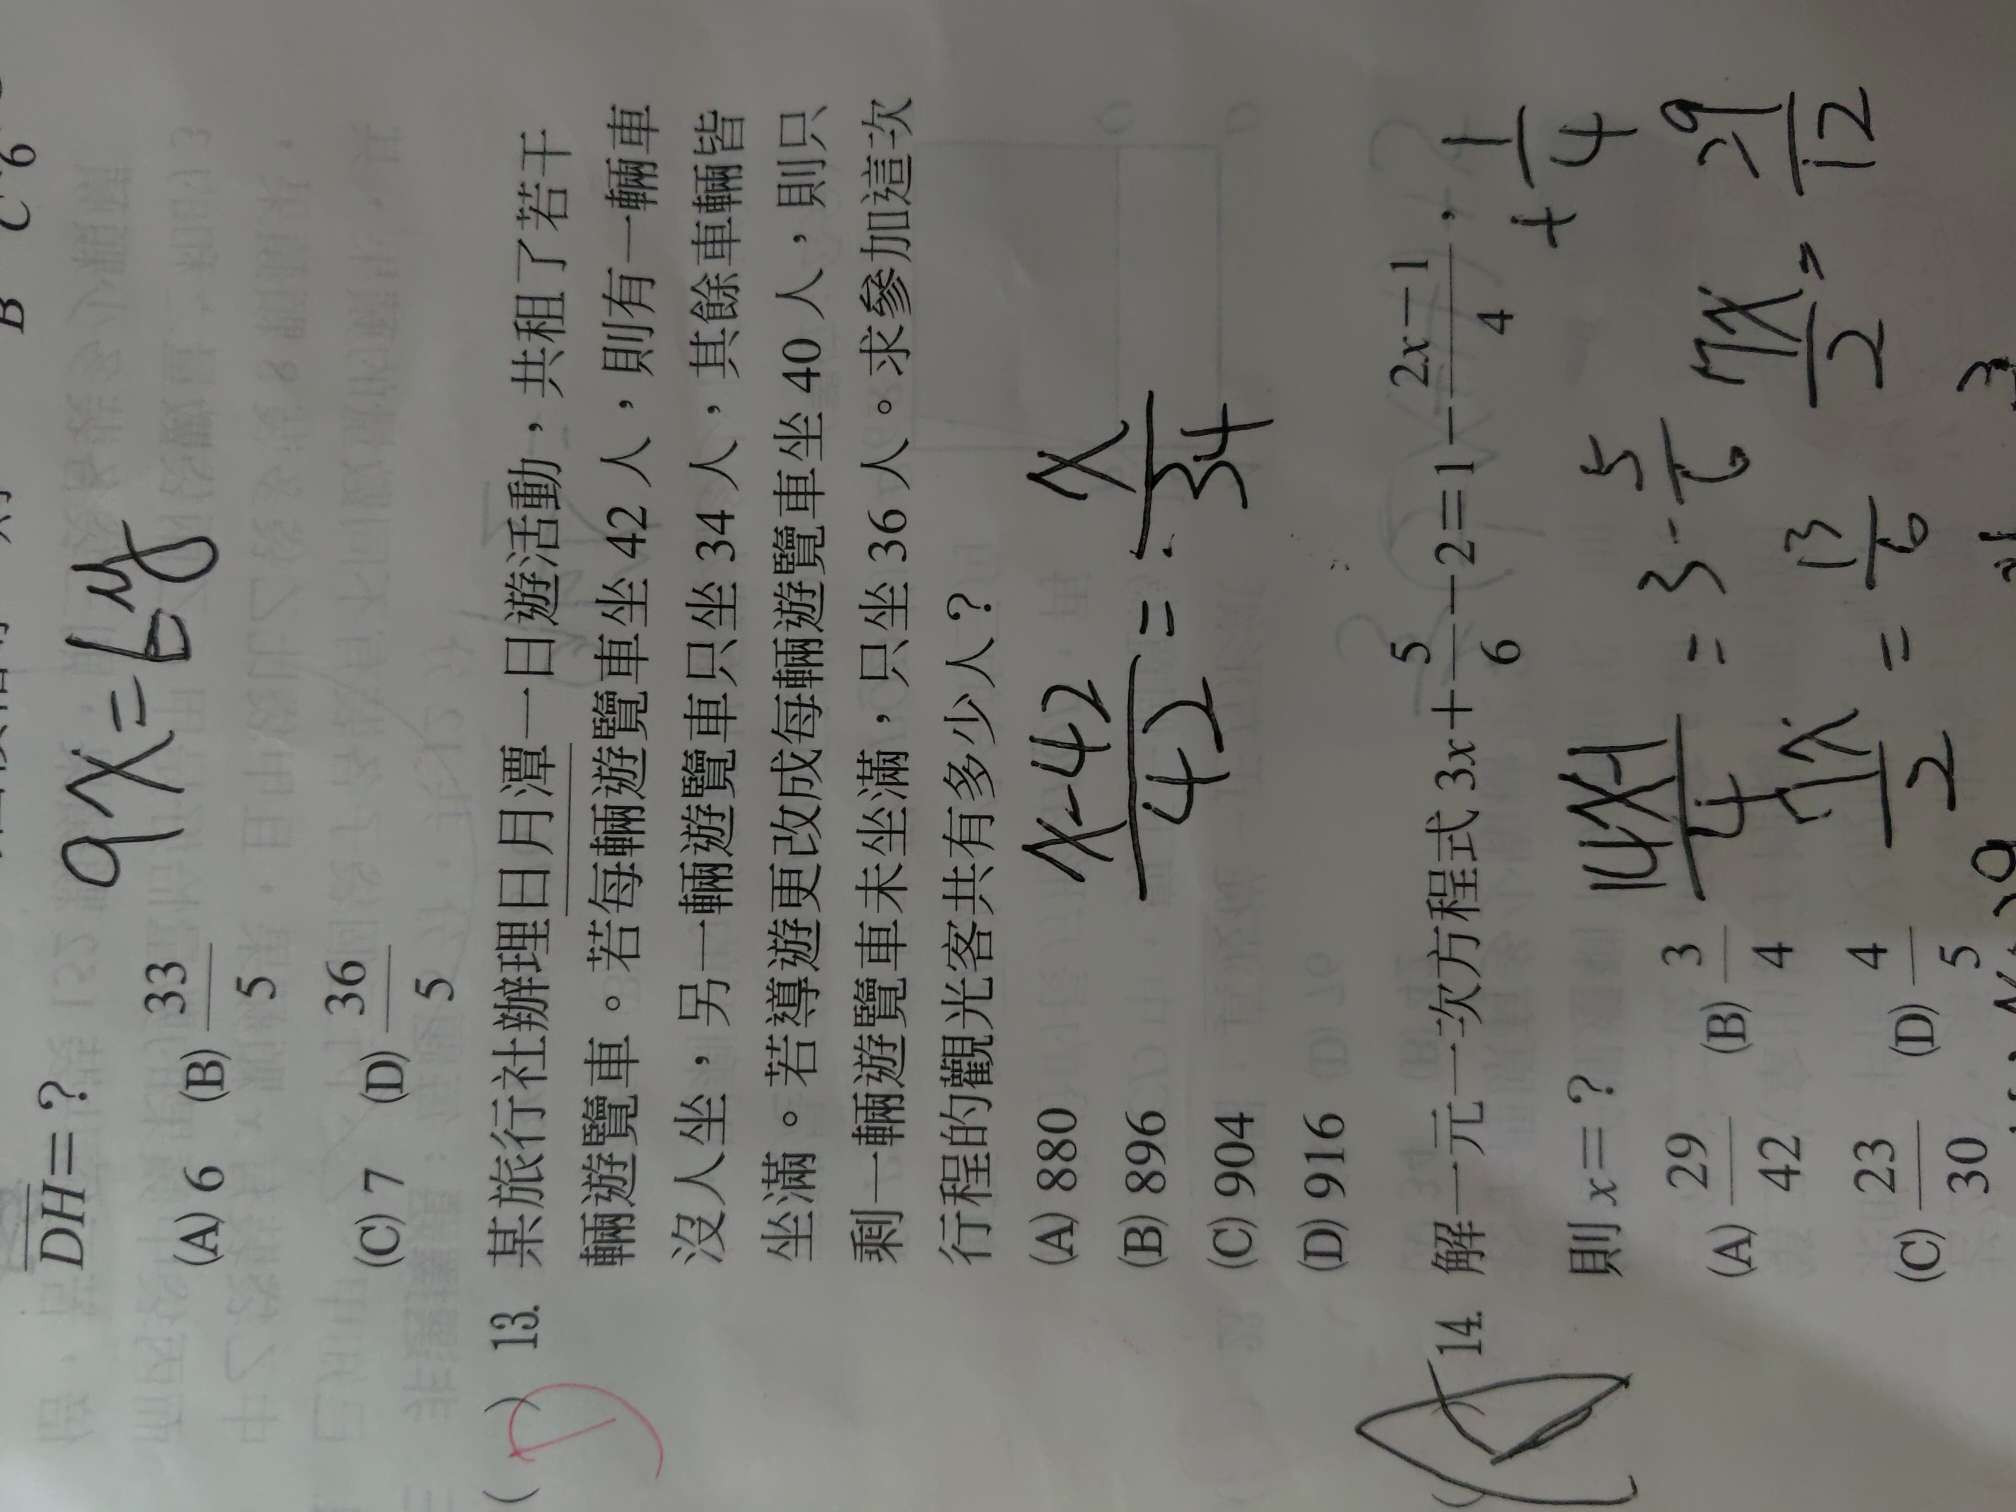 DH=?
9x=6y
(A) 6 (B) 33/5
(C) 7 (D) 36/5
( ) 13. 某旅行社辦理日月潭一日遊活動，共租了若干
輛遊覽車。若每輛遊覽車坐42人，則有一輛車
沒人坐，另一輛遊覽車只坐34人，其餘車輛皆
坐滿。若導遊更改成每輛遊覽車坐40人，則只
剩一輛遊覽車未坐滿，只坐36人。求參加這次
行程的觀光客共有多少人？
(A) 880
(B) 896
(C) 904
(D) 916
x-42/42 = x/34
( ) 14. 解一元一次方程式 3x+5/6-2=1-(2x-1)/4，
則x=？
(A) 29/42 (B) 3/4
(C) 23/30 (D) 4/5
14x-1/4 = 3-5/6
+1/4
7x/2 = 29/12
7x/2 = 13/6